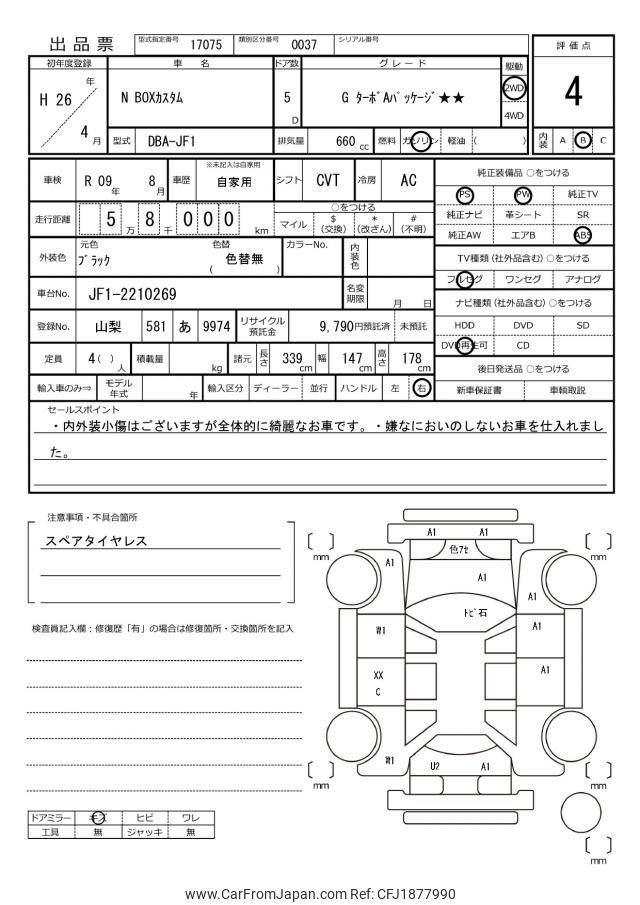 出品票 型式指定番号 17075 類別区分番号 0037 シリアル番号
評価点
4
内装 A B C
初年度登録 車名 ドア数 グレード 駆動
H 26 年 N BOXカスタム 5 D G ターボAパッケージ★★ 2WD
4 月 4WD
型式 DBA-JF1 排気量 660 cc 燃料 ガソリン 軽油 ( )
車検 R 09 年 8 月 車歴 ※未記入は自家用 自家用 シフト CVT 冷房 AC
走行距離 5 万 8 千 0 0 0 km ○をつける
マイル $(交換) *(改ざん) #(不明)
外装色 元色 ブラック 色替 ( 色替無 ) カラーNo. 内装色
車台No. JF1-2210269 名変期限 月 日
登録No. 山梨 581 あ 9974 リサイクル預託金 9,790円預託済 未預託
定員 4( ) 人 積載量 kg 諸元 長さ 339 cm 幅 147 cm 高さ 178 cm
輸入車のみ⇒ モデル年式 年 輸入区分 ディーラー 並行 ハンドル 左 右
純正装備品 ○をつける
PS PW 純正TV
純正ナビ 革シート SR
純正AW エアB ABS
TV種類(社外品含む) ○をつける
フルセグ ワンセグ アナログ
ナビ種類(社外品含む) ○をつける
HDD DVD SD
DVD再生可 CD
後日発送品 ○をつける
新車保証書 車輌取説
セールスポイント
・内外装小傷はございますが全体的に綺麗なお車です。・嫌なにおいのしないお車を仕入れまし
た。
注意事項・不具合箇所
スペアタイヤレス
検査員記入欄：修復歴「有」の場合は修復箇所・交換箇所を記入
ドアミラー キズ ヒビ ワレ
工具 無 ジャッキ 無
A1 A1
色アセ
A1
A1
A1
トビ石
W1 A1
XX A1
C
W1 U2 A1
mm mm
mm mm
mm
www.CarFromJapan.com Ref: CFJ1877990